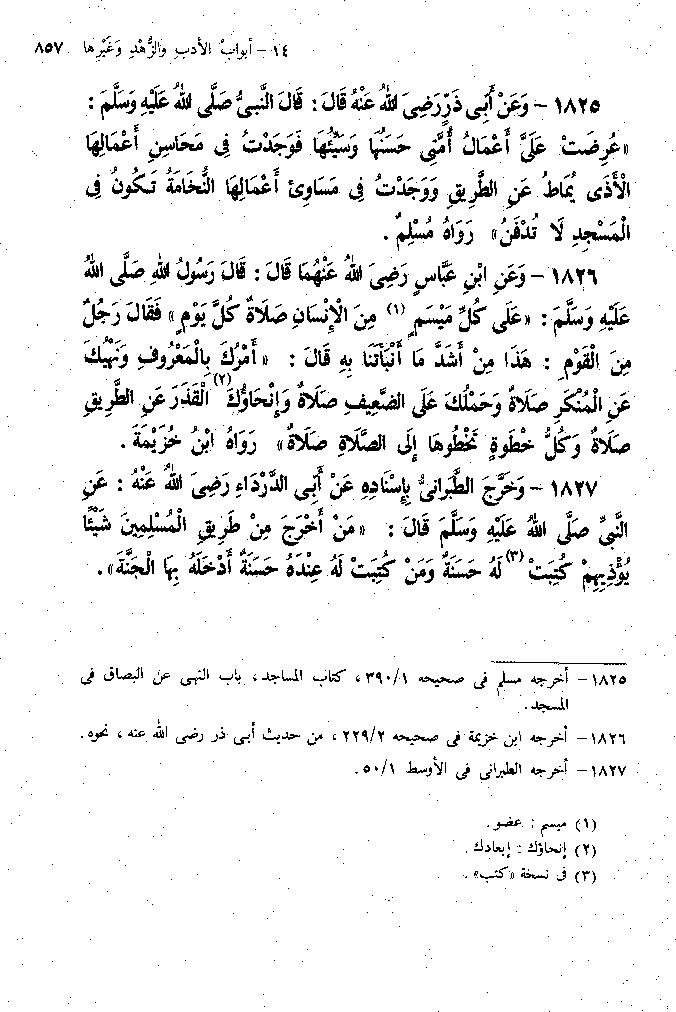 ١٤ - أبوابُ الأدبِ والزُّهْدِ وَغَيْرِها ٨٥٧
١٨٢٥ - وَعَنْ أَبِى ذَرٍّ رَضِىَ اللهُ عَنْهُ قَالَ: قَالَ النَّبِىُّ صَلَّى اللهُ عَلَيْهِ وَسَلَّمَ :
«عُرِضَتْ عَلَىَّ أَعْمَالُ أُمَّتِى حَسَنُهَا وَسَيِّئُهَا فَوَجَدْتُ فِى مَحَاسِنِ أَعْمَالِهَا
الْأَذَى يُمَاطُ عَنِ الطَّرِيقِ وَوَجَدْتُ فِى مَسَاوِئِ أَعْمَالِهَا النُّخَامَةُ تَكُونُ فِى
الْمَسْجِدِ لَا تُدْفَنُ» رَوَاهُ مُسْلِمٌ .
١٨٢٦ - وَعَنِ ابْنِ عَبَّاسٍ رَضِىَ اللهُ عَنْهُمَا قَالَ : قَالَ رَسُولُ اللهِ صَلَّى اللهُ
عَلَيْهِ وَسَلَّمَ : «عَلَى كُلِّ مِيْسَمٍ (١) مِنَ الْإِنْسَانِ صَلَاةٌ كُلَّ يَوْمٍ» فَقَالَ رَجُلٌ
مِنَ الْقَوْمِ : هَذَا مِنْ أَشَدِّ مَا أَنْبَأْتَنَا بِهِ قَالَ : «أَمْرُكَ بِالْمَعْرُوفِ وَنَهْيُكَ
عَنِ الْمُنْكَرِ صَلَاةٌ وَحَمْلُكَ عَلَى الضَّعِيفِ صَلَاةٌ وَإِنْحَاؤُكَ(٢) الْقَذَرَ عَنِ الطَّرِيقِ
صَلَاةٌ وَكُلُّ خَطْوَةٍ تَخْطُوهَا إِلَى الصَّلَاةِ صَلَاةٌ» رَوَاهُ ابْنُ خُزَيْمَةَ .
١٨٢٧ - وَخَرَّجَ الطَّبَرانىُّ بِإِسْنَادِهِ عَنْ أَبِى الدَّرْدَاءِ رَضِىَ اللهُ عَنْهُ : عَنِ
النَّبِىِّ صَلَّى اللهُ عَلَيْهِ وَسَلَّمَ قَالَ : «مَنْ أَخْرَجَ مِنْ طَرِيقِ الْمُسْلِمِينَ شَيْئًا
يُؤْذِيهِمْ كُتِبَتْ (٣) لَهُ حَسَنَةٌ وَمَنْ كُتِبَتْ لَهُ عِنْدَهُ حَسَنَةٌ أَدْخَلَهُ بِهَا الْجَنَّةَ».
١٨٢٥ - أخرجه مسلم فى صحيحه ٣٩٠/١، كتاب المساجد، باب النهى عن البصاق فى
المسجد.
١٨٢٦ - أخرجه ابن خزيمة فى صحيحه ٢٢٩/٢، من حديث أبى ذر رضى الله عنه، نحوه.
١٨٢٧ - أخرجه الطبرانى فى الأوسط ٥٠/١.
(١) ميسم : عضو.
(٢) إنحاؤك : إبعادك.
(٣) فى نسخة «كتب».